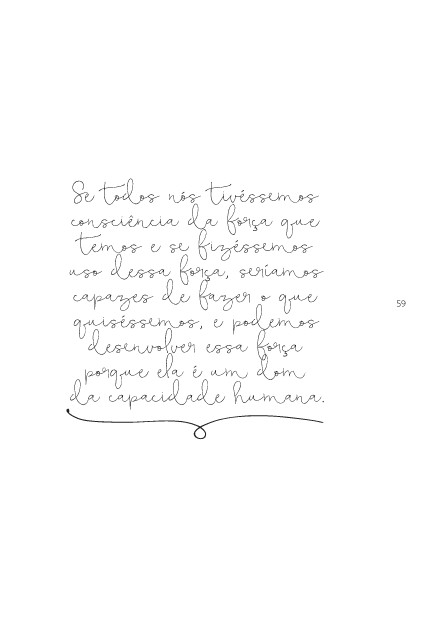 Se todos nós tivéssemos
consciência da força que
temos e se fizéssemos
uso dessa força, seríamos
capazes de fazer o que
quiséssemos, e podemos
desenvolver essa força
porque ela é um dom
da capacidade humana.
59